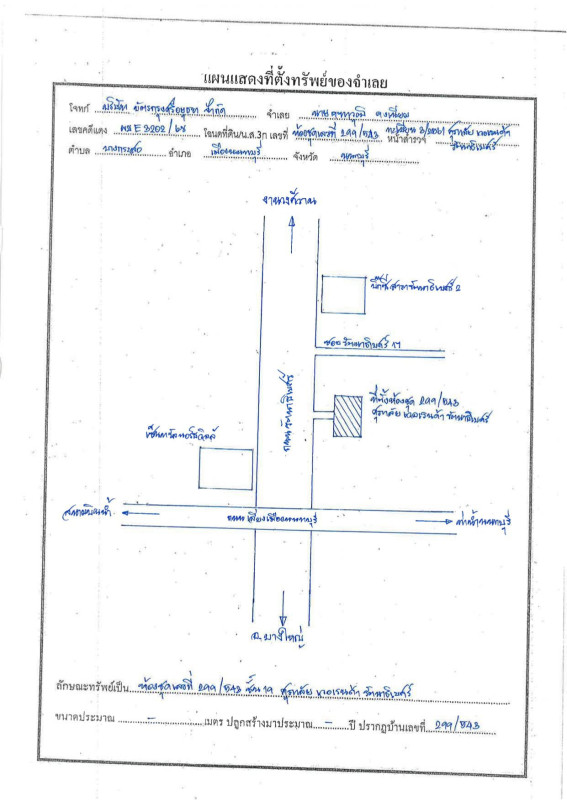 แผนแสดงที่ตั้งทรัพย์ของจำเลย
โจทก์ บริษัท บัตรกรุงศรีอยุธยา จำกัด จำเลย นาย
เลขคดีแดง ผบ E3202/65 โฉนดที่ดิน/น.ส.3ก เลขที่ ห้องชุดเลขที่ 299/543 หน้าสำรวจ ทะเบียน 3/2561 ศุภาลัย เวอเรนด้า
รัตนาธิเบศร์
ตำบล บางกระสอ อำเภอ เมืองนนทบุรี จังหวัด นนทบุรี
งามวงศ์วาน
บิ๊กซีสาขารัตนาธิเบศร์ 2
ซอย รัตนาธิเบศร์ 17
ถนนรัตนาธิเบศร์
ที่ตั้งห้องชุด 299/543
ศุภาลัย เวอเรนด้า รัตนาธิเบศร์
เซ็นทรัลนอร์ธวิลล์
สนามบินน้ำ
ถนนเลี่ยงเมืองนนทบุรี
ท่าน้ำนนทบุรี
อ.บางใหญ่
ลักษณะทรัพย์เป็น ห้องชุดเลขที่ 299/543 ชั้น 19 ศุภาลัย เวอเรนด้า รัตนาธิเบศร์
ขนาดประมาณ - เมตร ปลูกสร้างมาประมาณ - ปี ปรากฏบ้านเลขที่ 299/543